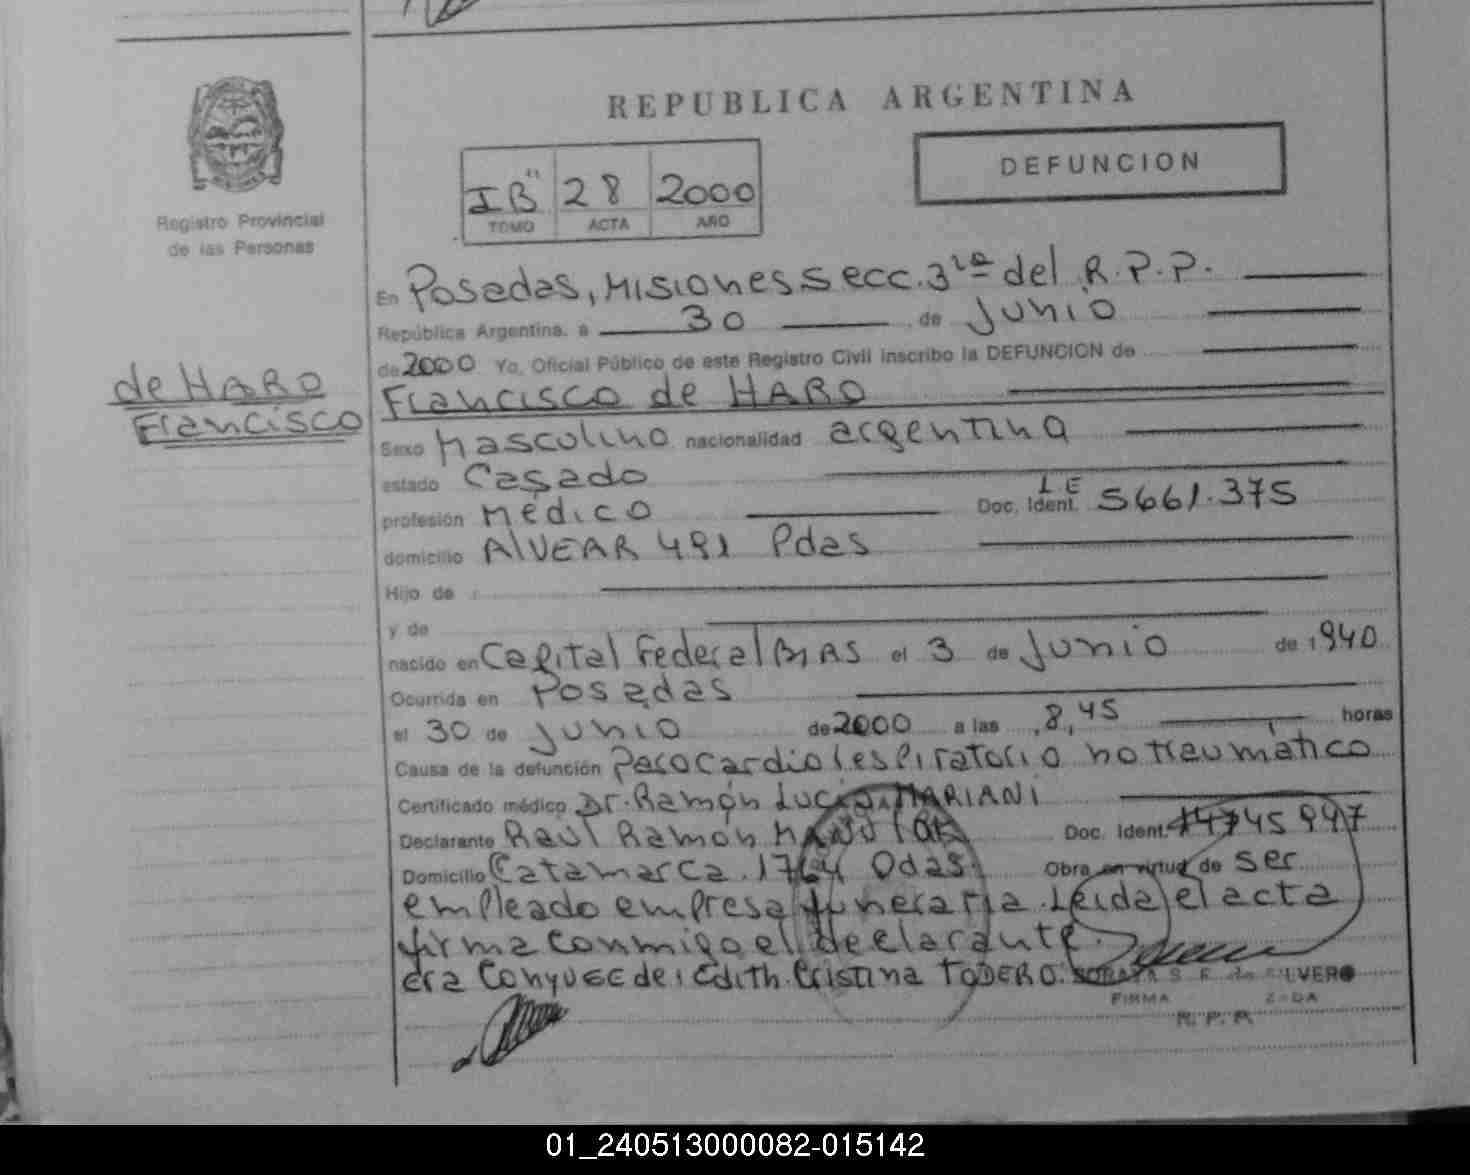 REPUBLICA ARGENTINA
DEFUNCION
IB" 28 2000
TOMO ACTA AÑO
Registro Provincial
de las Personas
de HARO
Francisco
En Posadas, Misiones Secc. 3ra del R.P.P.
República Argentina, a 30 de Junio
de 2000 Yo, Oficial Público de este Registro Civil inscribo la DEFUNCION de
Francisco de HARO
Sexo Masculino nacionalidad argentina
estado Casado
profesión Médico Doc. Ident. L E 5661.375
domicilio AlVEAR 491 Pdas
Hijo de
y de
nacido en Capital Federal Bs AS el 3 de Junio de 1940
Ocurrida en Posadas
el 30 de Junio de 2000 a las 8,45 horas
Causa de la defunción Parocardiorespiratorio no traumático
Certificado médico Dr. Ramón Lucio MARIANI
Declarante Raúl Ramón Doc. Ident. 14745997
Domicilio Catamarca 1764 Pdas. Obra en virtud de ser
empleado empresa funeraria. Leida el acta
firma conmigo el declarante.
era Conyuge de: Edith Cristina TODERO. S. F. de SILVERO
FIRMA
R. P. P.
01_240513000082-015142